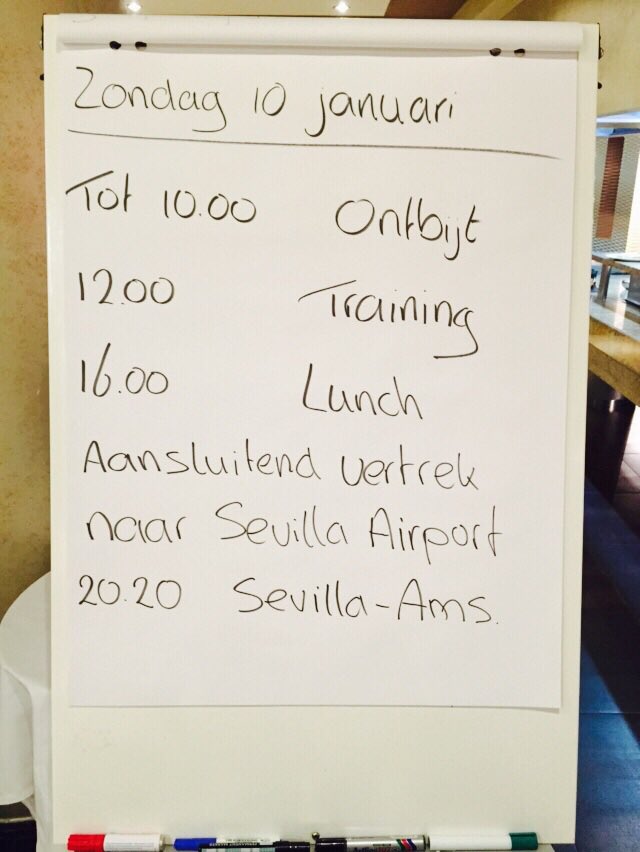 Zondag 10 januari
Tot 10.00 Ontbijt
12.00 Training
16.00 Lunch
Aansluitend vertrek
naar Sevilla Airport
20.20 Sevilla-Ams.